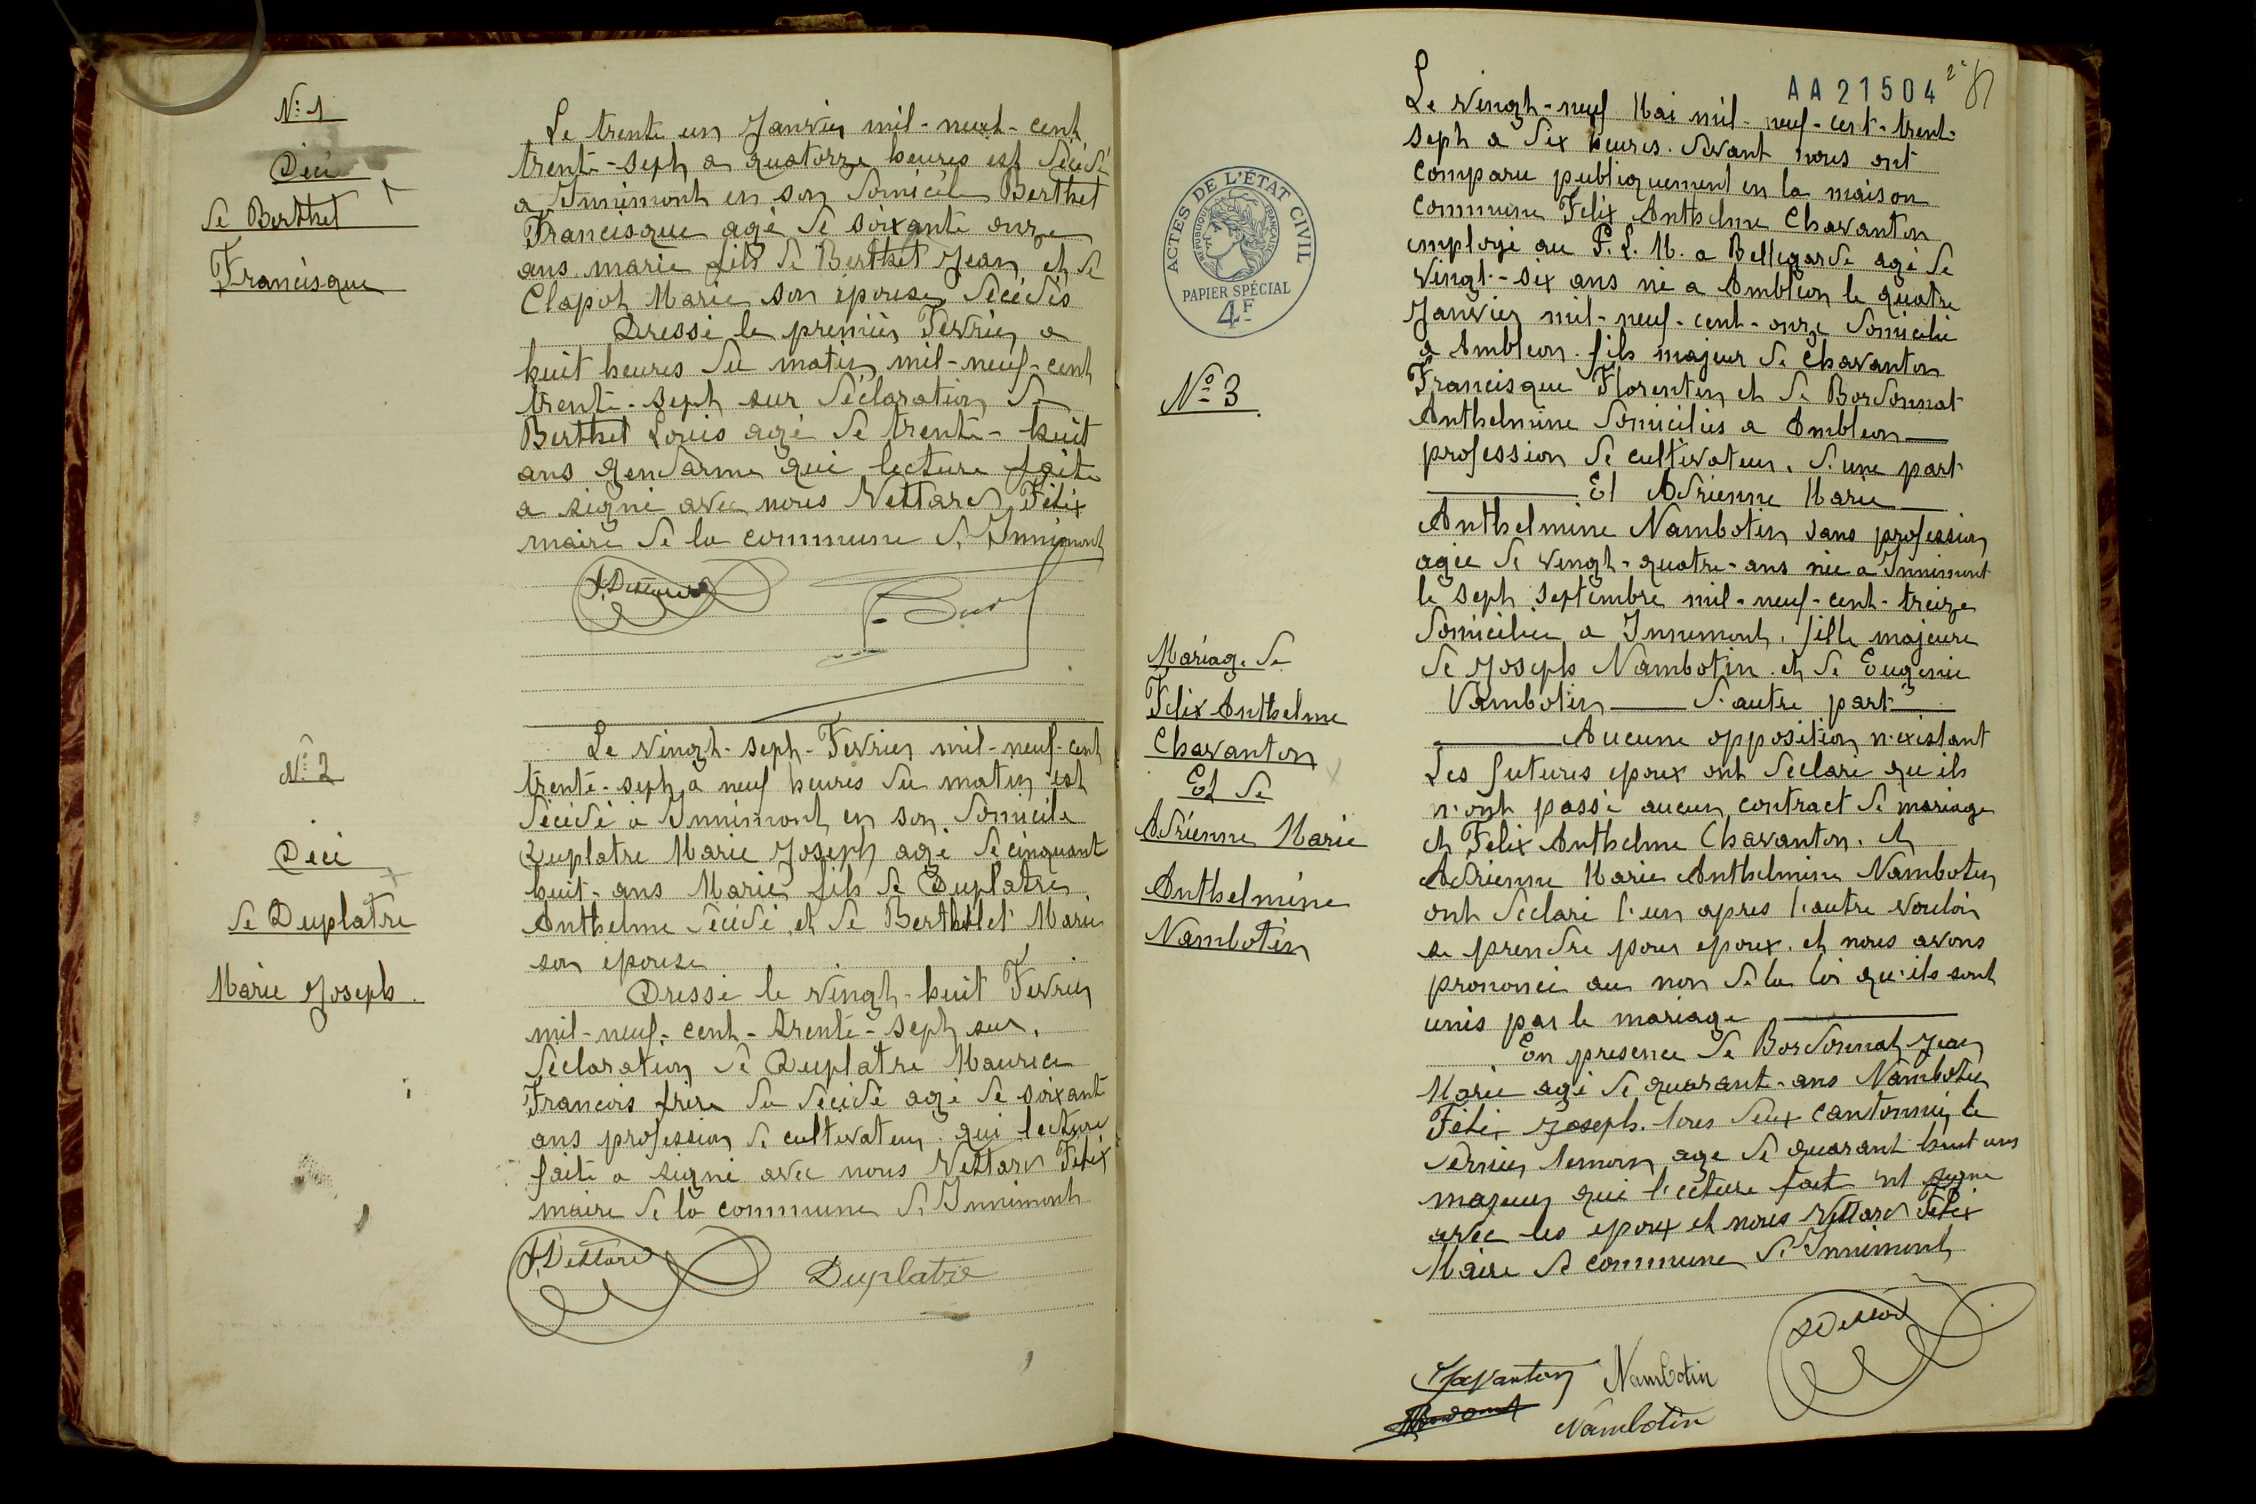 N: 1
Déci
de Berthet
Francisque
Le trente un Janvier mil-neuf-cent
trente-sept a quatorze heures est décédé
a Innimont en son domicile Berthet
Francisque agé de soixante onze
ans marié fils de Berthet Jean et de
Clapot Marie son épouse décédés
Dressé le premier Février a
huit heures du matin mil-neuf-cent
trente-sept sur déclaration de
Berthet Louis agé de trente-huit
ans gendarme qui lecture faite
a signé avec nous Vettard Félix
maire de la commune d'Innimont
N: 2
Déci
de Duplatre
Marie Joseph.
Le vingt-sept-Fevrier mil-neuf-cent
trente-sept a neuf heures du matin est
décédé à Innimont en son domicile
Duplatre Marie Joseph agé de cinquant
huit-ans Marié fils de Duplatre
Anthelme décédé et de Berthelet Marie
son épouse
Dressé le vingt-huit Fevrier
mil-neuf-cent-trente-sept sur
déclaration de Duplatre Maurice
Francois frère du décédé agé de soixant
ans profession de cultivateur qui lecture
faite a signé avec nous Vettard Félix
maire de la commune d'Innimont
Duplatre
AA21504
ACTES DE L'ÉTAT CIVIL
RÉPUBLIQUE FRANÇAISE
PAPIER SPÉCIAL
4F
Nº 3
Mariage de
Felix Anthelme
Chavanton
Et de
Adrienne Marie
Anthelmine
Nambotin
Le vingt-neuf Mai mil-neuf-cent-trent-
sept a dix heures. devant nous ont
comparu publiquement en la maison
commune Felix Anthelme Chavanton
employé au P. L. M. a Bellegarde agé de
vingt-six ans né a Ambléon le quatre
Janvier mil-neuf-cent-onze domicilié
a Ambleon. fils majeur de Chavanton
Francisque Florentin et de Bordonnat
Anthelmine domiciliés a Ambleon
profession de cultivateur. d'une part
Et Adrienne Marie
Anthelmine Nambotin sans profession
agée de vingt-quatre-ans née a Innimont
le sept septembre mil-neuf-cent-treize
domiciliée a Innimont. fille majeure
de Joseph Nambotin et de Eugenie
Nambotin d'autre part
Aucune opposition n'existant
Les futures epoux ont déclaré qu'ils
n'ont passé aucun contract de mariage
et Felix Anthelme Chavanton. et
Adrienne Marie Anthelmine Nambotin
ont déclaré l'un apres l'autre vouloir
se prendre pour epoux. et nous avons
prononcé au non de la loi qu'ils sont
unis par le mariage
En presence de Bordonnat Jean
Marie agé de quarant-ans Nambotin
Félix Joseph. tous deux cantonnier le
dernier temoin agé de quarant huit ans
majeur qui l'ecture fait ont signé
avec les epoux et nous Vettard Félix
Maire de commune d'Innimont
Chavanton Nambotin
Nambotin